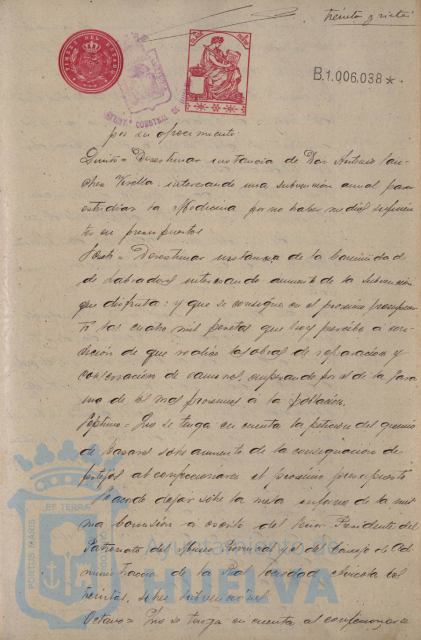 treinta y siete
B.1.006.038*
por su ofrecimiento
Quinto = Desestimar instancia de Don Antonio San-
chez interesando una subvención anual para
estudiar la Medicina por no haber medios suficien-
tes en presupuestos
Sexto = Desestimar instancia de la Comunidad
de Labradores interesando aumento de la subvención
que disfruta: y que se consigne en el proximo presupues-
to las cuatro mil pesetas que hoy percibe á con-
dición de que realice las obras de reparación y
conservación de caminos, empezando por el de la
mas proximos a la población.
Septimo = Que se tenga en cuenta la petición del gremio
de sobre aumento de la consignación de
festejos al confeccionarse el proximo presupuesto
Quede dejar sobre la mesa informe de la mis-
ma Comisión á escrito del Señor Presidente del
Patronato del Museo Provincial y del Consejo de Ad-
ministración de la Real Sociedad Colombi-
sobre subvenciones
Octavo = Que se tenga en cuenta al confeccionarse
Ayuntamiento de
HUELVA
PORTUS MARIS ET TERRAE CUSTODIA